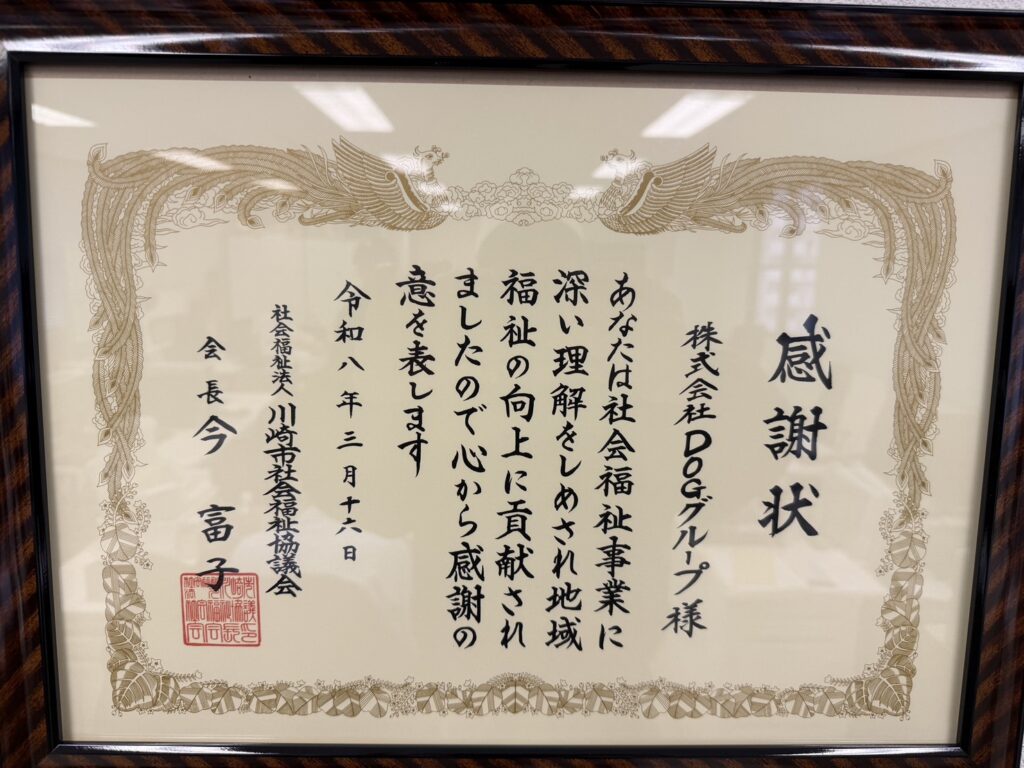 感謝状
株式会社DOGグループ様
あなたは社会福祉事業に
深い理解をしめされ地域
福祉の向上に貢献され
ましたので心から感謝の
意を表します
令和八年三月十六日
社会福祉法人 川崎市社会福祉協議会
会長 今 富子